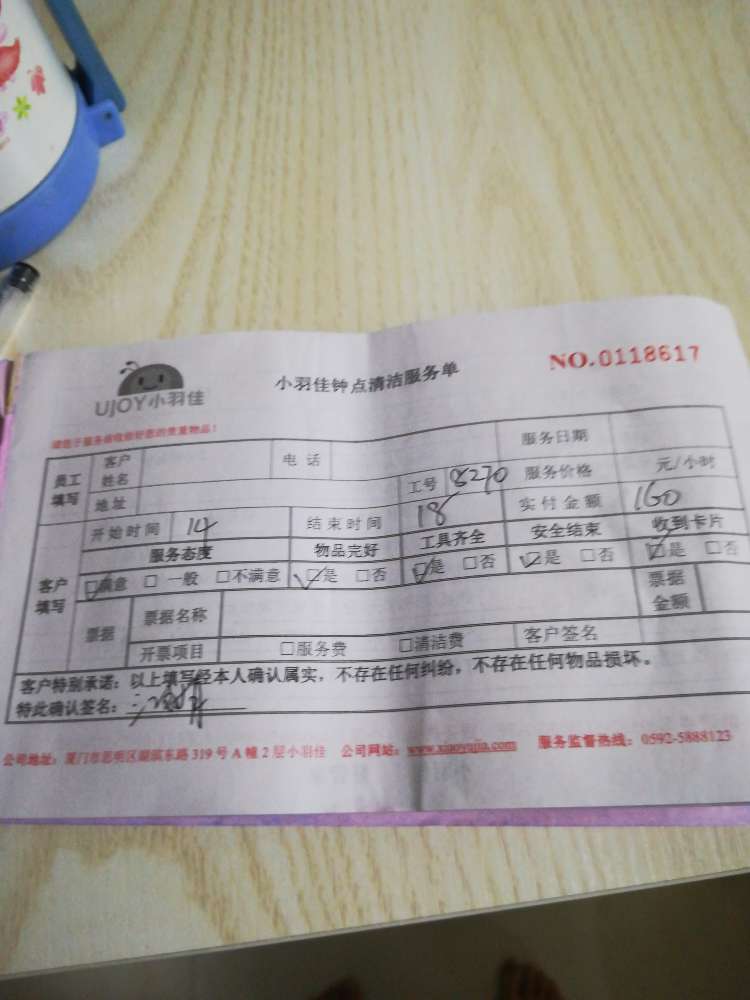 UJOY小羽佳
小羽佳钟点清洁服务单
NO.0118617
请您于服务前收捡好您的贵重物品!
员工填写 客户姓名 电话 服务日期
地址 工号 8270 服务价格 元/小时
客户填写 开始时间 14 结束时间 18 实付金额 160
服务态度 物品完好 工具齐全 安全结束 收到卡片
☑满意 □一般 □不满意 ☑是 □否 ☑是 □否 ☑是 □否 ☑是 □否
票据 票据名称 票据金额
开票项目 □服务费 □清洁费 客户签名
客户特别承诺:以上填写经本人确认属实,不存在任何纠纷,不存在任何物品损坏。
特此确认签名:
公司地址:厦门市思明区湖滨东路319号A幢2层小羽佳 公司网站:www.xiaoyujia.com 服务监督热线:0592-5888123